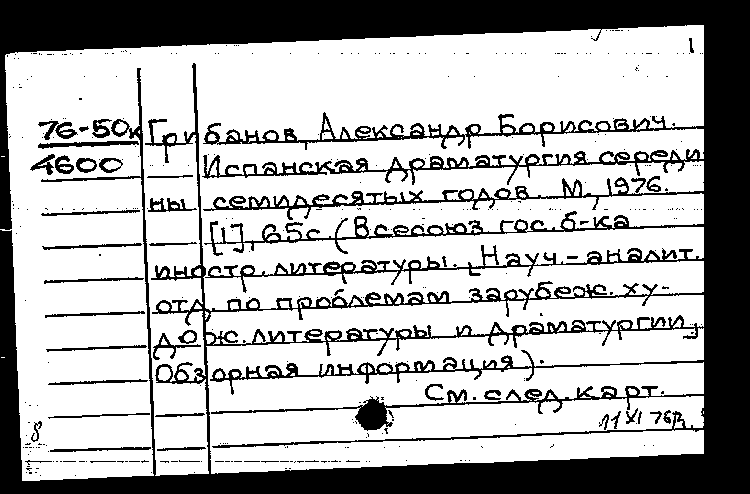 1
76-50к Грибанов, Александр Борисович.
4600 Испанская драматургия середи
ны семидесятых годов. М., 1976.
[1], 65с. (Всесоюз гос. б-ка
иностр. литературы. [Науч.-аналит.
отд. по проблемам зарубеж. ху-
дож. литературы и драматургии]
Обзорная информация).
См. след. карт.
8